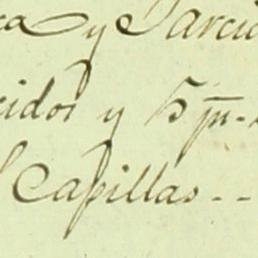 ca y Parcia
cidos y 5 jn.
Capillas --